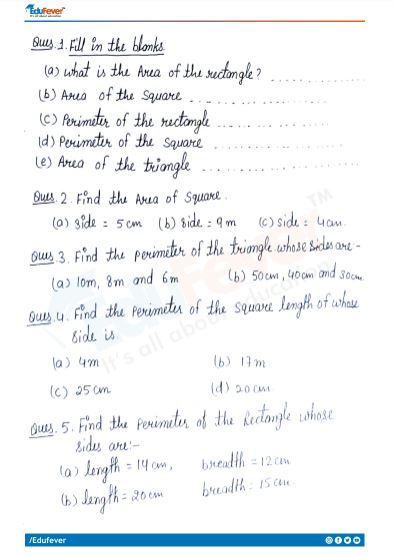 EduFever
It's all about education
Ques.1. Fill in the blanks.
(a) what is the Area of the rectangle? . . . . . . . . . . . . .
(b) Area of the Square . . . . . . . . . . . . . . . .
(c) Perimeter of the rectangle . . . . . . . . . . . . . . .
(d) Perimeter of the square . . . . . . . . . . . . . . . . .
(e) Area of the triangle . . . . . . . . . . . . . . . . . .
Ques.2. Find the Area of Square.
(a) Side = 5cm (b) Side = 9m (c) Side = 4cm.
Ques.3. Find the perimeter of the triangle whose sides are -
(a) 10m, 8m and 6m (b) 50cm, 40cm and 30cm.
Ques.4. Find the Perimeter of the square length of whose
side is
(a) 4m (b) 17m
(c) 25cm (d) 20cm.
Ques.5. Find the Perimeter of the Rectangle whose
sides are:-
(a) length = 14cm, breadth = 12cm
(b) length = 20cm breadth = 15cm.
EduFever
It's all about education
TM
/Edufever